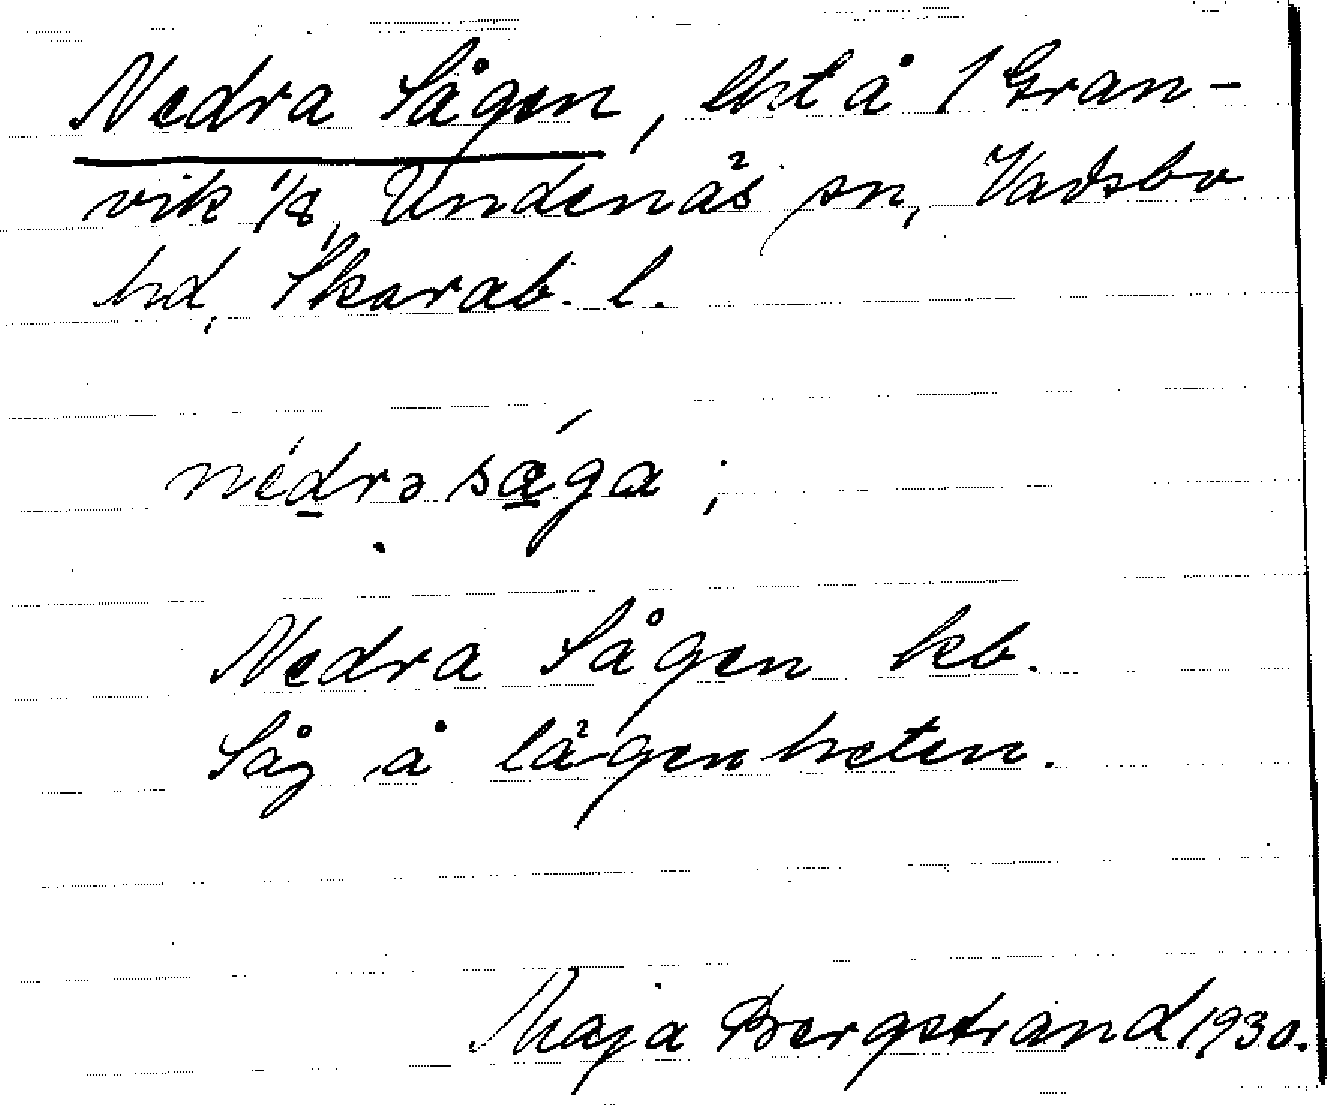 Nedra Sågen, lht å 1 Gran-
vik 1/8, Undenäs sn, Vadsbo
hd, Skarab. l.
nédrə sǽga;
Nedra Sågen kb.
Såg å lägenheten.
Maja Bergstrand 1930.